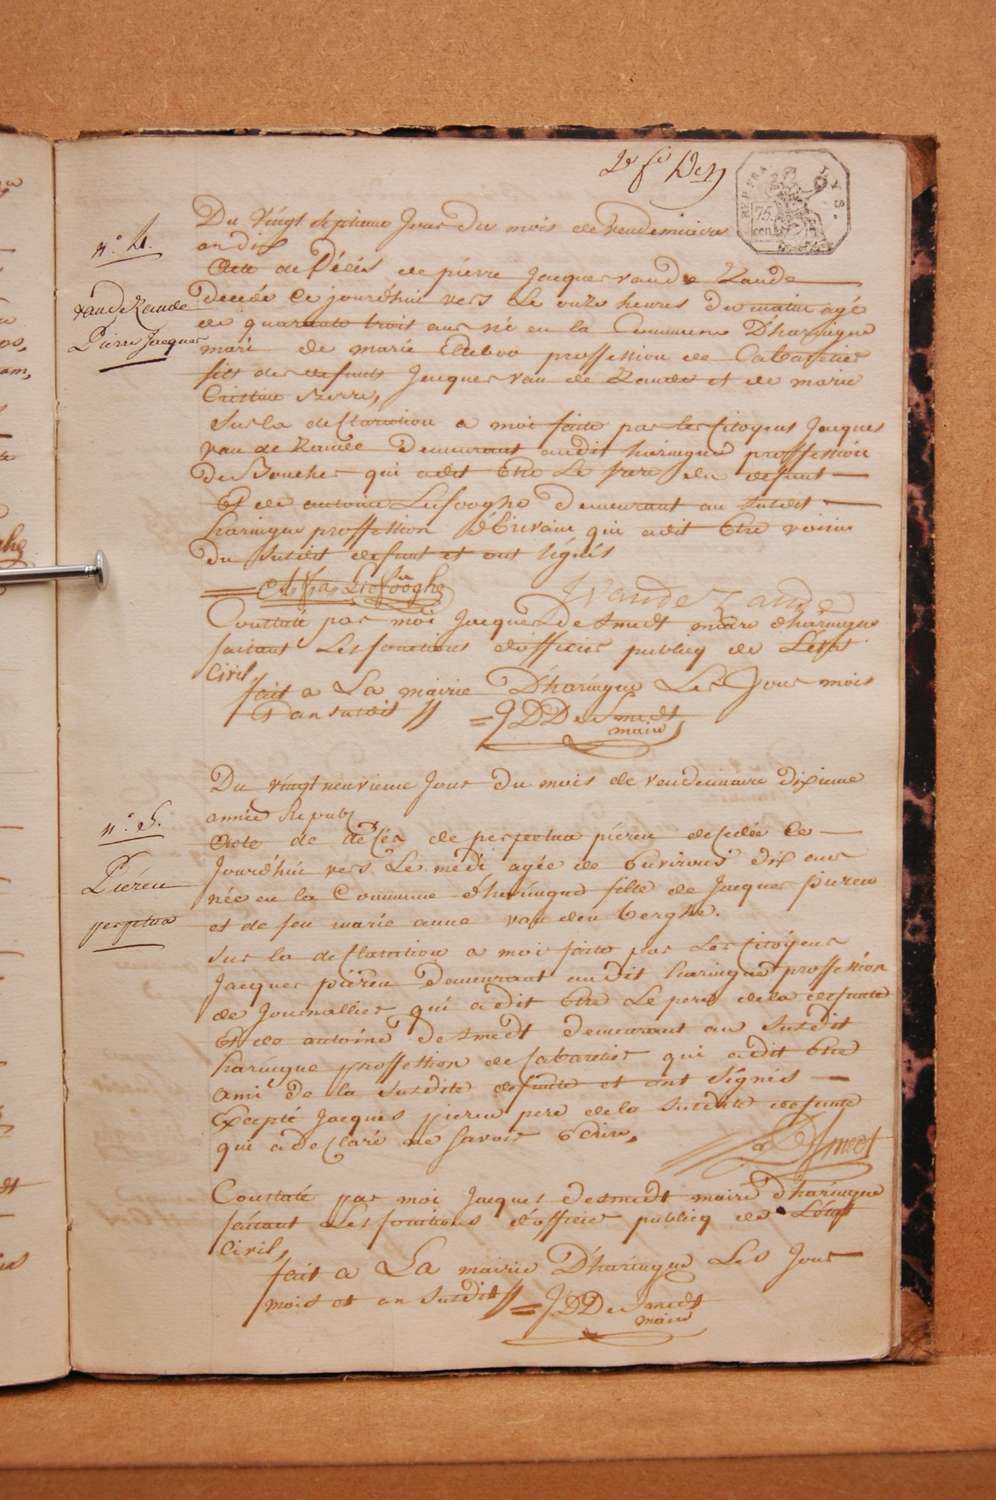 2e fe
REP. FRA.
75
cen.
n.° 4.
vandeZande
Pierre Jacques
Du vingt septieme Jour du mois de vendemiaire
an dix
Acte de Décès de pierre Jacques van de Zande
decedé ce jourd'hui vers le onze heures du matin agé
de quarante trois ans né en la Commune D'haringue
marié de marie proffession de Cabaretier
fils des defunts Jacques van de Zande et de marie
Cristine
Sur la declaration a moi faite par les citoyens Jacques
van de Zande demeurant audit haringue proffession
De Boucher qui a dit être le pere du defunt
Et de antoine Lefooghe demeurant au susdit
haringue proffession d'Ecrivain qui a dit être voisin
du susdit defunt et ont signés
Lefooghe JvandeZande
Constaté par moi Jacques Desmedt maire d'haringue
faisant les fonctions d'officier publicq de L'état
Civil
fait a La mairie D'haringue Les Jour mois
Et an susdit // = JDDesmedt
maire
n.° 5.
Piéreu
perpetua
Du vingt neuvieme Jour du mois de vendemiaire dixieme
année Repub
Acte de décés de perpetua piéreu decedée ce
Jourd'hui vers Le medi agée de Environs dix ans
née en la Commune d'haringue fille de Jacques piereu
et de feu marie anne van den berghe.
Sur la declaration a moi faite par Les citoyens
Jacques piéreu demeurant audit haringue proffession
de Journallier qui a dit Etre Le pere de la defunte
Et de antoine Desmedt demeurant au susdit
haringue proffession de Cabaretier qui a dit Etre
ami de la susdite defunte et ont signés
Excepté Jacques piereu pere de la susdite defunte
qui a declaré ne savoir Ecrire.
a DeSmedt
Constaté par moi Jacques desmedt maire d'haringue
faisant Les fonctions d'officier publicq de L'état
Civil,
fait a La mairie D'haringue Les Jour
mois et an susdit // = JDDesmedt
maire